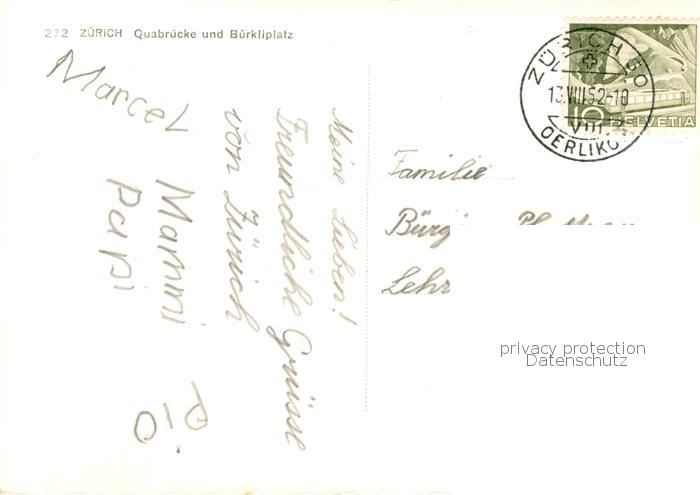 272 ZÜRICH Quabrücke und Bürkliplatz
ZÜRICH 50
13.VIII.52-10
VIII.
OERLIKO
10 HELVETIA
Meine Lieben!
Freundliche Grüsse
von Zürich
Marcel
Mammi
Papi
Pio
Familie
Bürg
Lehr
privacy protection
Datenschutz